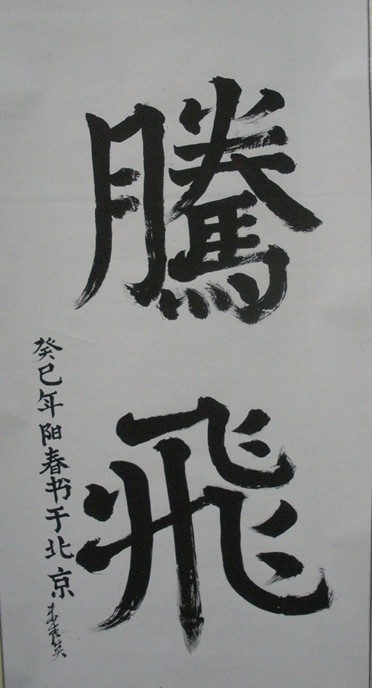 騰飛
癸巳年阳春书于北京